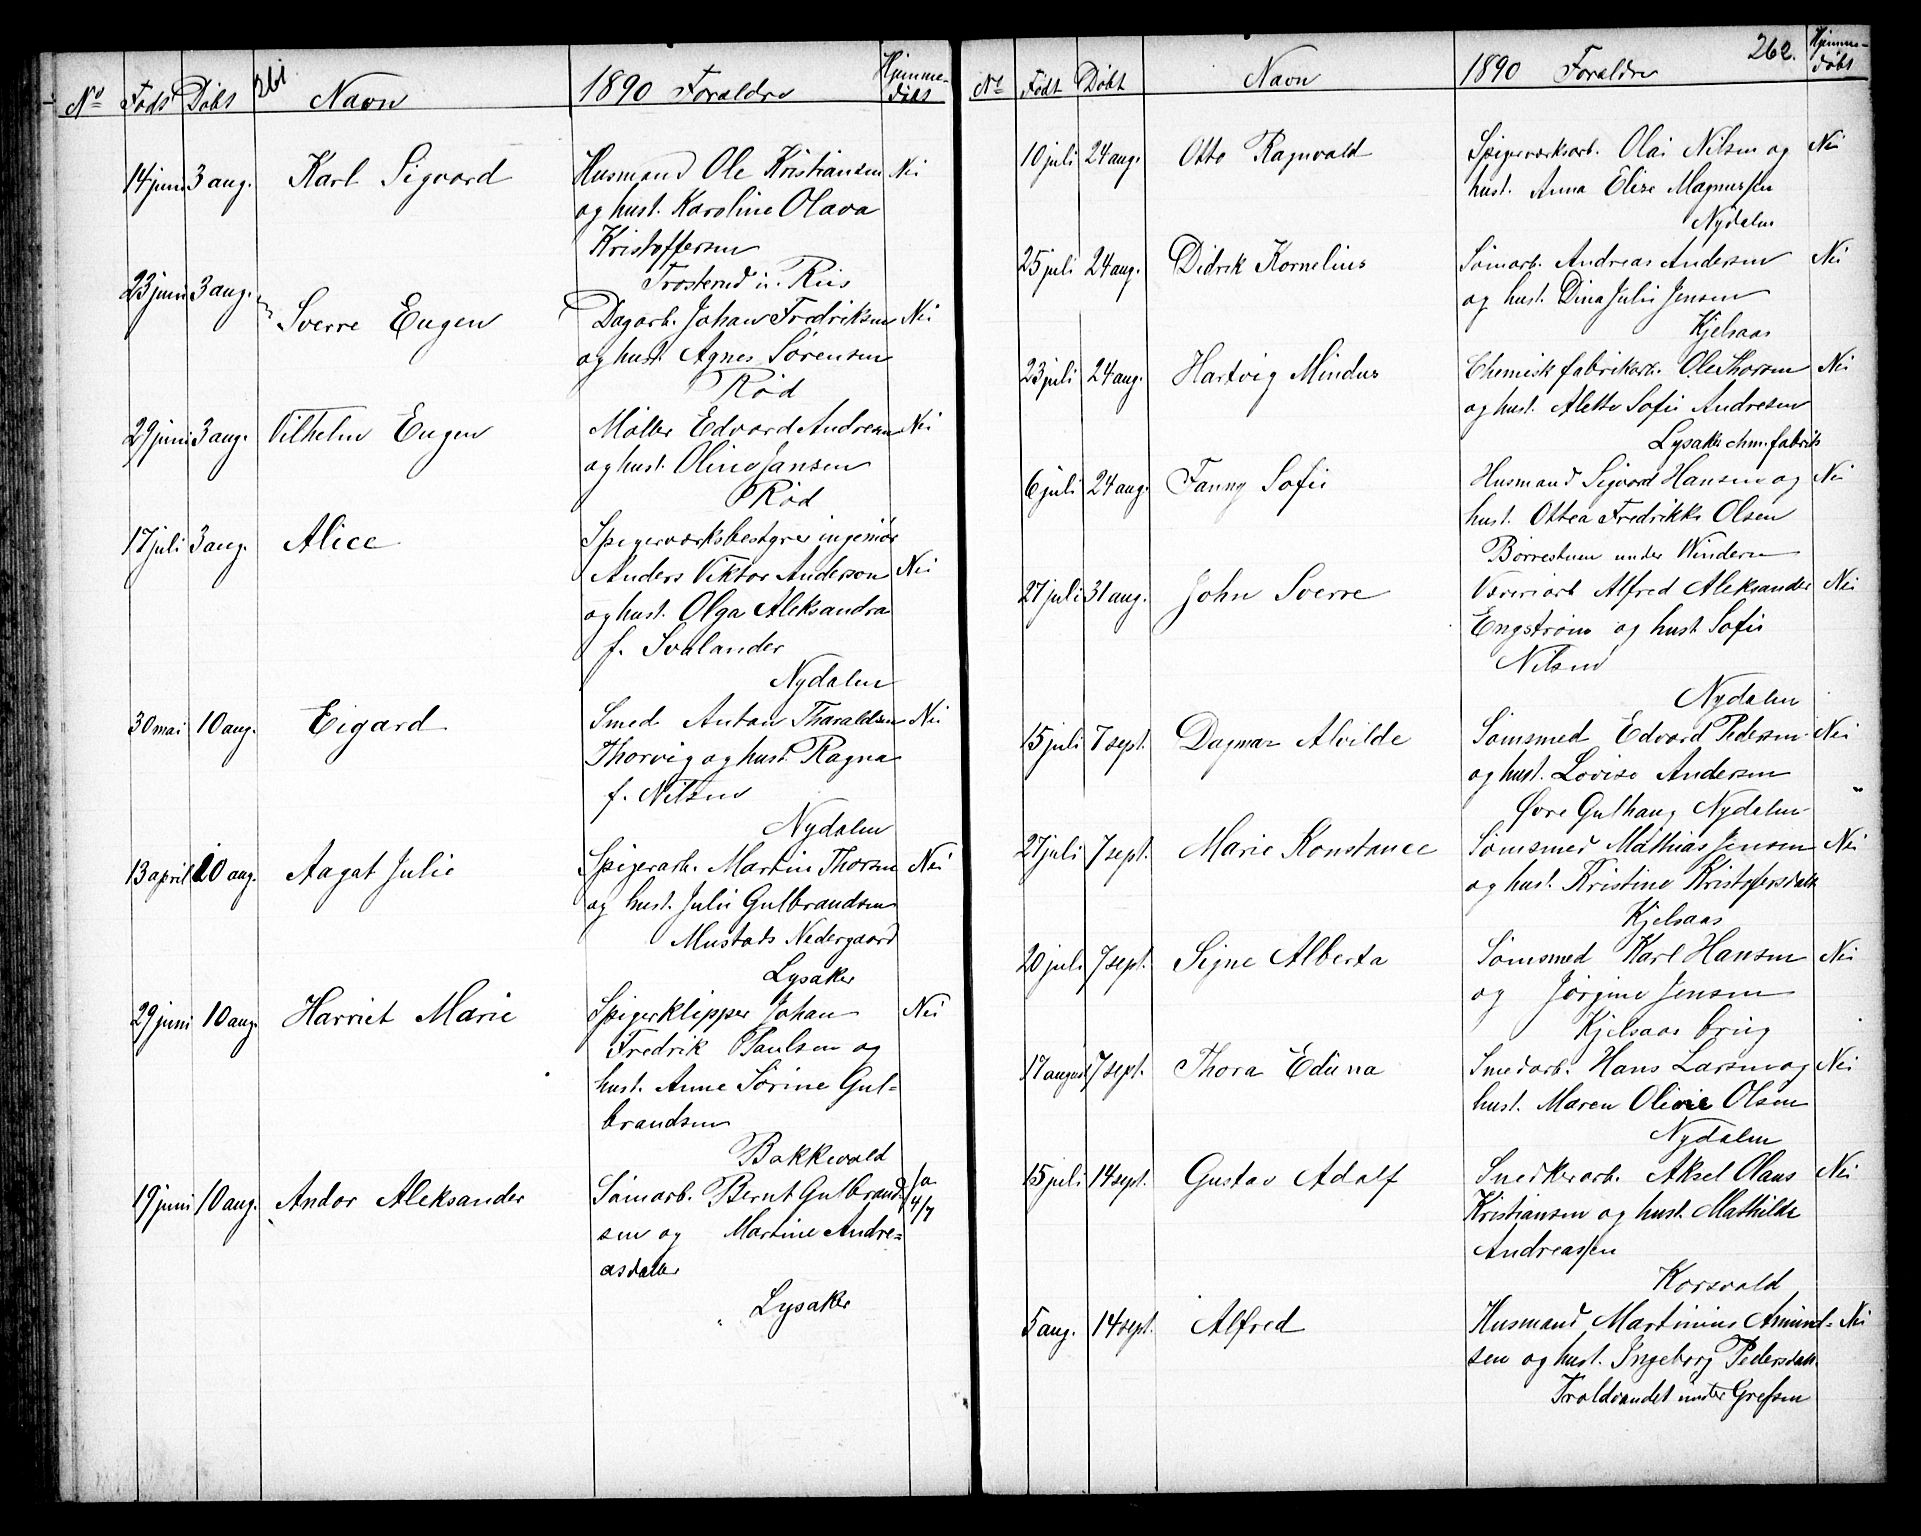 261
No Født Døbt Navn 1890 Forældre Hjemme-
døbt
14 juni 3 aug. Karl Sigvard Husmand Ole Kristiansen Nei
og hust. Karoline Olava
Kristoffersen
Trosterud u. Riis
23 juni 3 aug. Sverre Eugen Dagarb. Johan Fredriksen Nei
og hust. Agnes Sørensen
Rød
29 juni 3 aug. Vilhelm Eugen Møller Edvard Andresen Nei
og hust. Oline Jansen
Rød
17 juli 3 aug. Alice Spigerværksbestyrer ingeniør
Anders Viktor Anderson Nei
og hust. Olga Aleksandra
f. Svalander
Nydalen
30 mai 10 aug. Eigard Smed Anton Tharaldsen Nei
Thorvig og hust. Ragna
f. Nilsen
Nydalen
13 april 10 aug. Aagat Julie Spigerarb. Martin Thorsen Nei
og hust. Julie Gulbrandsen
Mustads Nedergaard
Lysaker
29 juni 10 aug. Harriet Marie Spigerklipper Johan Nei
Fredrik Paulsen og
hust. Anne Sørine Gul-
brandsen
Bakkevold
19 juni 10 aug. Andor Aleksander Sømarb. Bernt Gulbrand- Ja
sen og Martine Andre- 4/7
asdatter
Lysaker
No Født Døbt Navn 1890 Forældre 262. Hjemme-
døbt
10 juli 24 aug. Otto Ragnvald Spigerværksarb. Olai Nilsen og Nei
hust. Anna Elise Magnussen
Nydalen
25 juli 24 aug. Didrik Kornelius Sømarb. Andreas Andersen Nei
og hust. Dina Julie Jensen
Kjelsaas
23 juli 24 aug. Hartvig Mindus Chemisk fabrikarb. Ole Thorsen Nei
og hust. Alette Sofie Andresen
Lysaker chm. fabrik
6 juli 24 aug. Fanny Sofie Husmand Sigvard Hansen og Nei
hust. Ottea Fredrikke Olsen
Børrestuen under Vinderen
27 juli 31 aug. John Sverre Væveriarb Alfred Aleksander Nei
Engstrøm og hust Sofie
Nilsen
Nydalen
15 juli 7 sept. Dagmar Alvilde Sømsmed Edvard Pedersen Nei
og hust. Lovise Andersen
Øvre Gulhaug Nydalen
27 juli 7 sept. Marie Konstance Sømsmed Mathias Jensen Nei
og hust. Kristine Kristofersdatt
Kjelsaas
20 juli 7 sept. Signe Alberta Sømsmed Karl Hansen Nei
og Jørgine Jensen
Kjelsaas brug
17 august 7 sept. Thora Eduna Smedarb. Hans Larsen og Nei
hust. Maren Olivie Olsen
Nydalen
15 juli 14 sept. Gustav Adolf Snedkerarb. Aksel Olaus Nei
Kristiansen og hust. Mathilde
Andreassen
Korsvold
5 aug. 14 sept. Alfred Husmand Martinius Amund- Nei
sen og hust. Ingeborg Pedersdatt.
Troldvandet under Grefsen